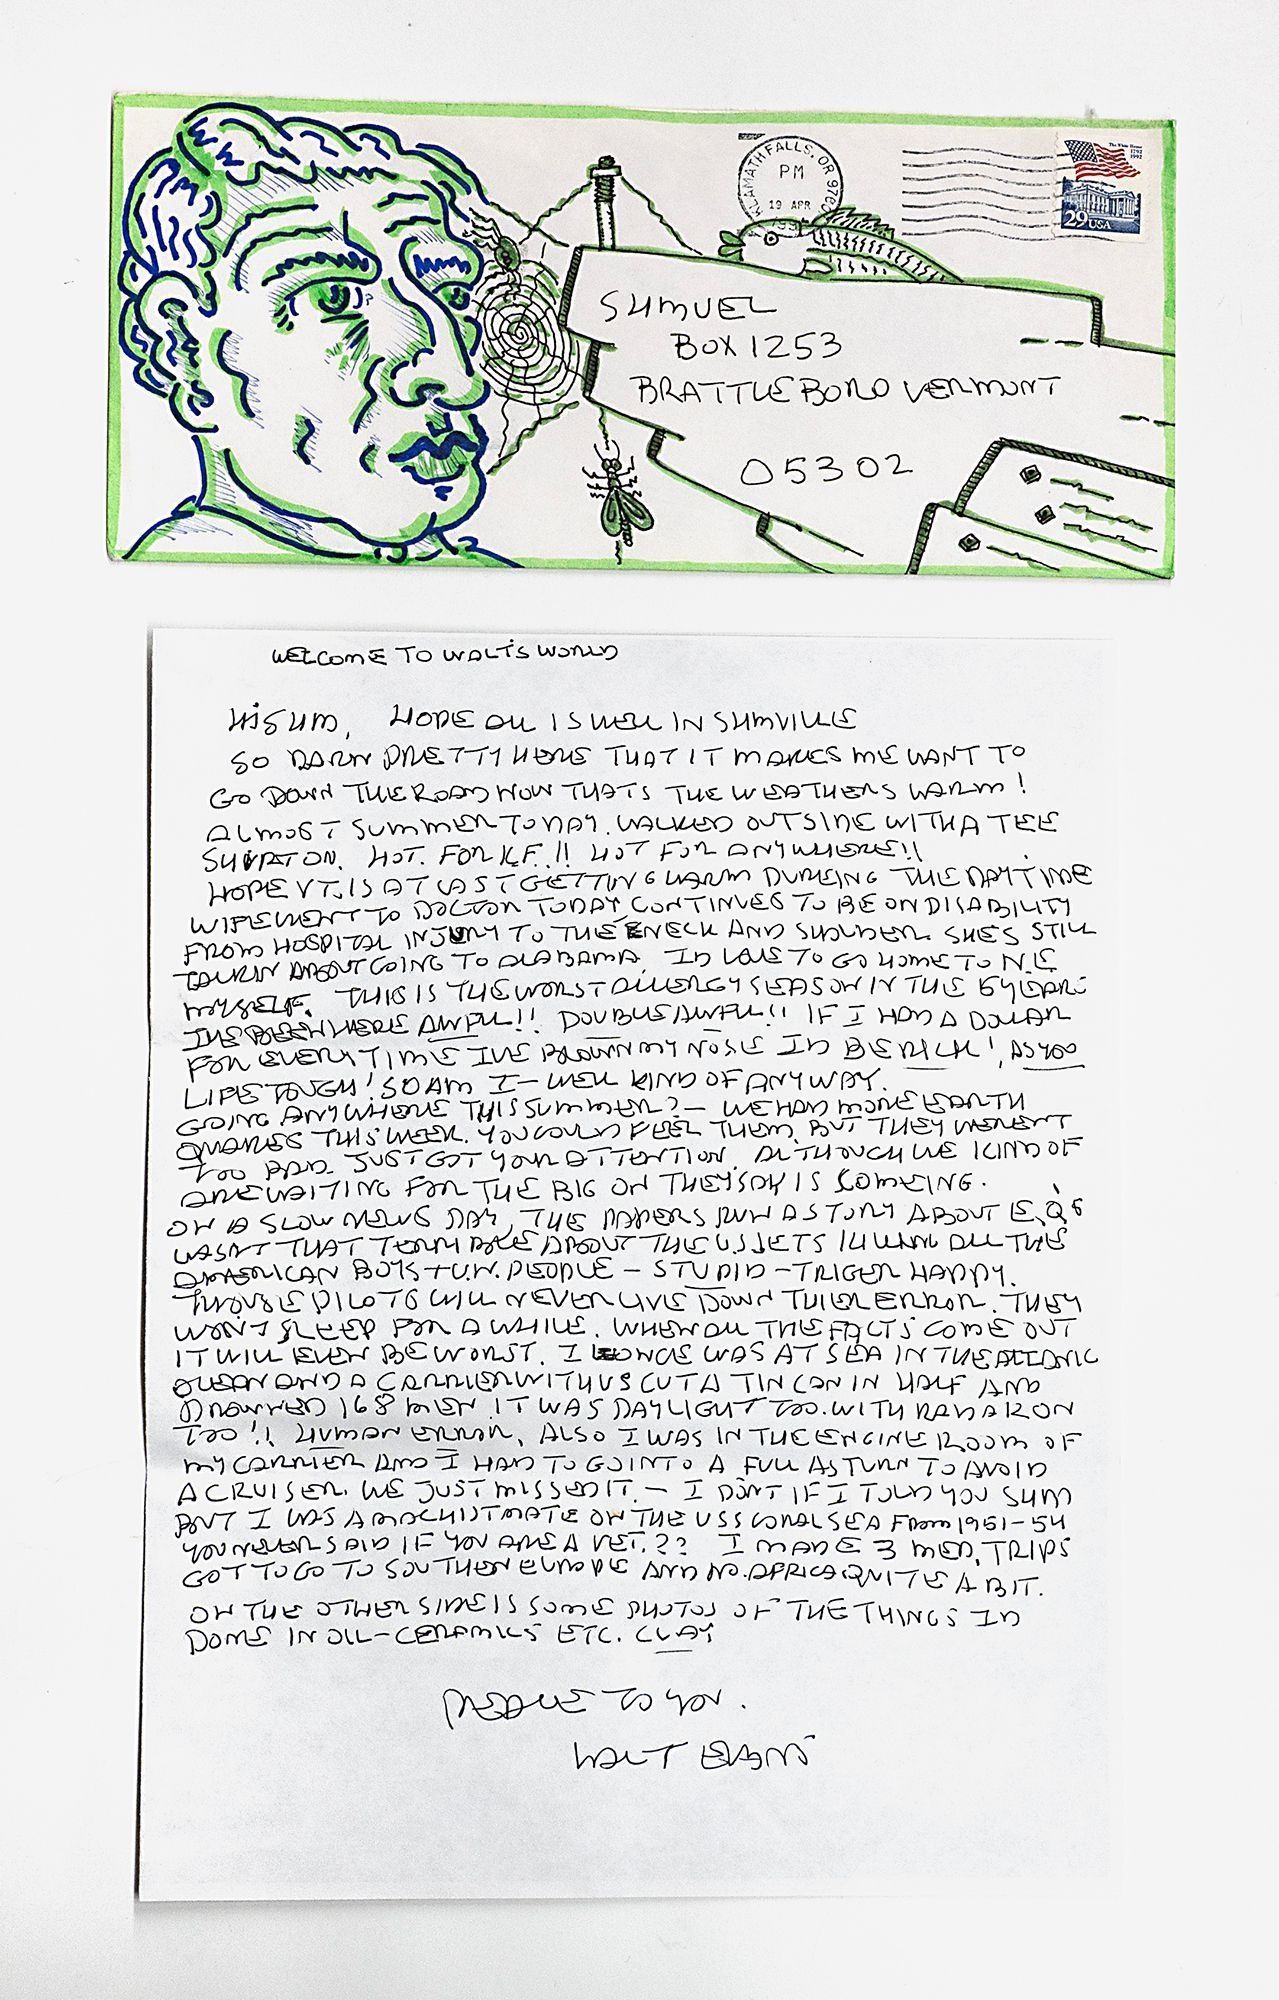 KLAMATH FALLS, OR 9760
PM
19 APR
199
The White House
1792
1992
29 USA
SUMUEL
BOX 1253
BRATTLEBORO VERMONT
05302
WELCOME TO WALT'S WORLD
HI SUM, HOPE ALL IS WELL IN SUMVILLE
SO DARN PRETTY HERE THAT IT MAKES ME WANT TO
GO DOWN THE ROAD NOW THATS THE WEATHERS WARM!
ALMOST SUMMER TODAY. WALKED OUTSIDE WITH A TEE
SHIRT ON. HOT. FOR K.F.!! HOT FOR ANYWHERE!!
HOPE VT. IS AT LAST GETTING WARM DUREING THE DAYTIME
WIFE WENT TO DOCTOR TODAY CONTINUES TO BE ON DISABILITY
FROM HOSPITAL INJURY TO THE NECK AND SHOLDER. SHE'S STILL
TALKIN ABOUT GOING TO ALABAMA. ID LOVE TO GO HOME TO N.E
MYSELF. THIS IS THE WORST ALLERGY SEASON IN THE 5 YEARS
IVE BEEN HERE AWFUL!! DOUBLE AWFUL!! IF I HAD A DOLLAR
FOR EVERY TIME IVE BLOWN MY NOSE ID BE RICH! AS YOO
LIFES TOUGH! SO AM I - WELL KIND OF ANYWAY.
GOING ANYWHERE THIS SUMMER? - WE HAD MORE EARTH
QUAKES THIS WEEK. YOU COULD FEEL THEM. BUT THEY WERENT
TOO BAD. JUST GOT YOUR ATTENTION. ALTHOUGH WE KIND OF
ARE WAITING FOR THE BIG ON THEY SAY IS COMEING.
ON A SLOW NEWS DAY, THE PAPERS RUN A STORY ABOUT E.Q'S
WASN'T THAT TERRIBLE ABOUT THE US JETS KILLING ALL THE
AMERICAN BOYS + U.N. PEOPLE - STUPID - TRIGER HAPPY.
THOUSE PILOTS WILL NEVER LIVE DOWN THIER ERROR. THEY
WON'T SLEEP FOR A WHILE. WHEN ALL THE FACTS COME OUT
IT WILL EVEN BE WORST. I ONCE WAS AT SEA IN THE ATLANIC
OCEAN AND A CARRIER WITH US CUT A TIN CAN IN HALF AND
DROWNED 168 MEN. IT WAS DAYLIGHT TOO. WITH RADAR ON
TOO!! HUMAN ERROR. ALSO I WAS IN THE ENGINE ROOM OF
MY CARRIER AND I HAD TO GO INTO A FULL ASTURN TO AVOID
A CRUISER. WE JUST MISSED IT. - I DON'T IF I TOLD YOU SUM
BUT I WAS A MACHISTMATE ON THE USS CORAL SEA FROM 1951-54
YOU NEVER SAID IF YOU ARE A VET.?? I MADE 3 MED. TRIPS
GOT TO GO TO SOUTHERN EUROPE AND NO. AFRICA QUITE A BIT.
ON THE OTHER SIDE IS SOME PHOTOS OF THE THINGS ID
DONE IN OIL-CERAMICS ETC. CLAY
PEACE TO YOU.
WALT EVANS